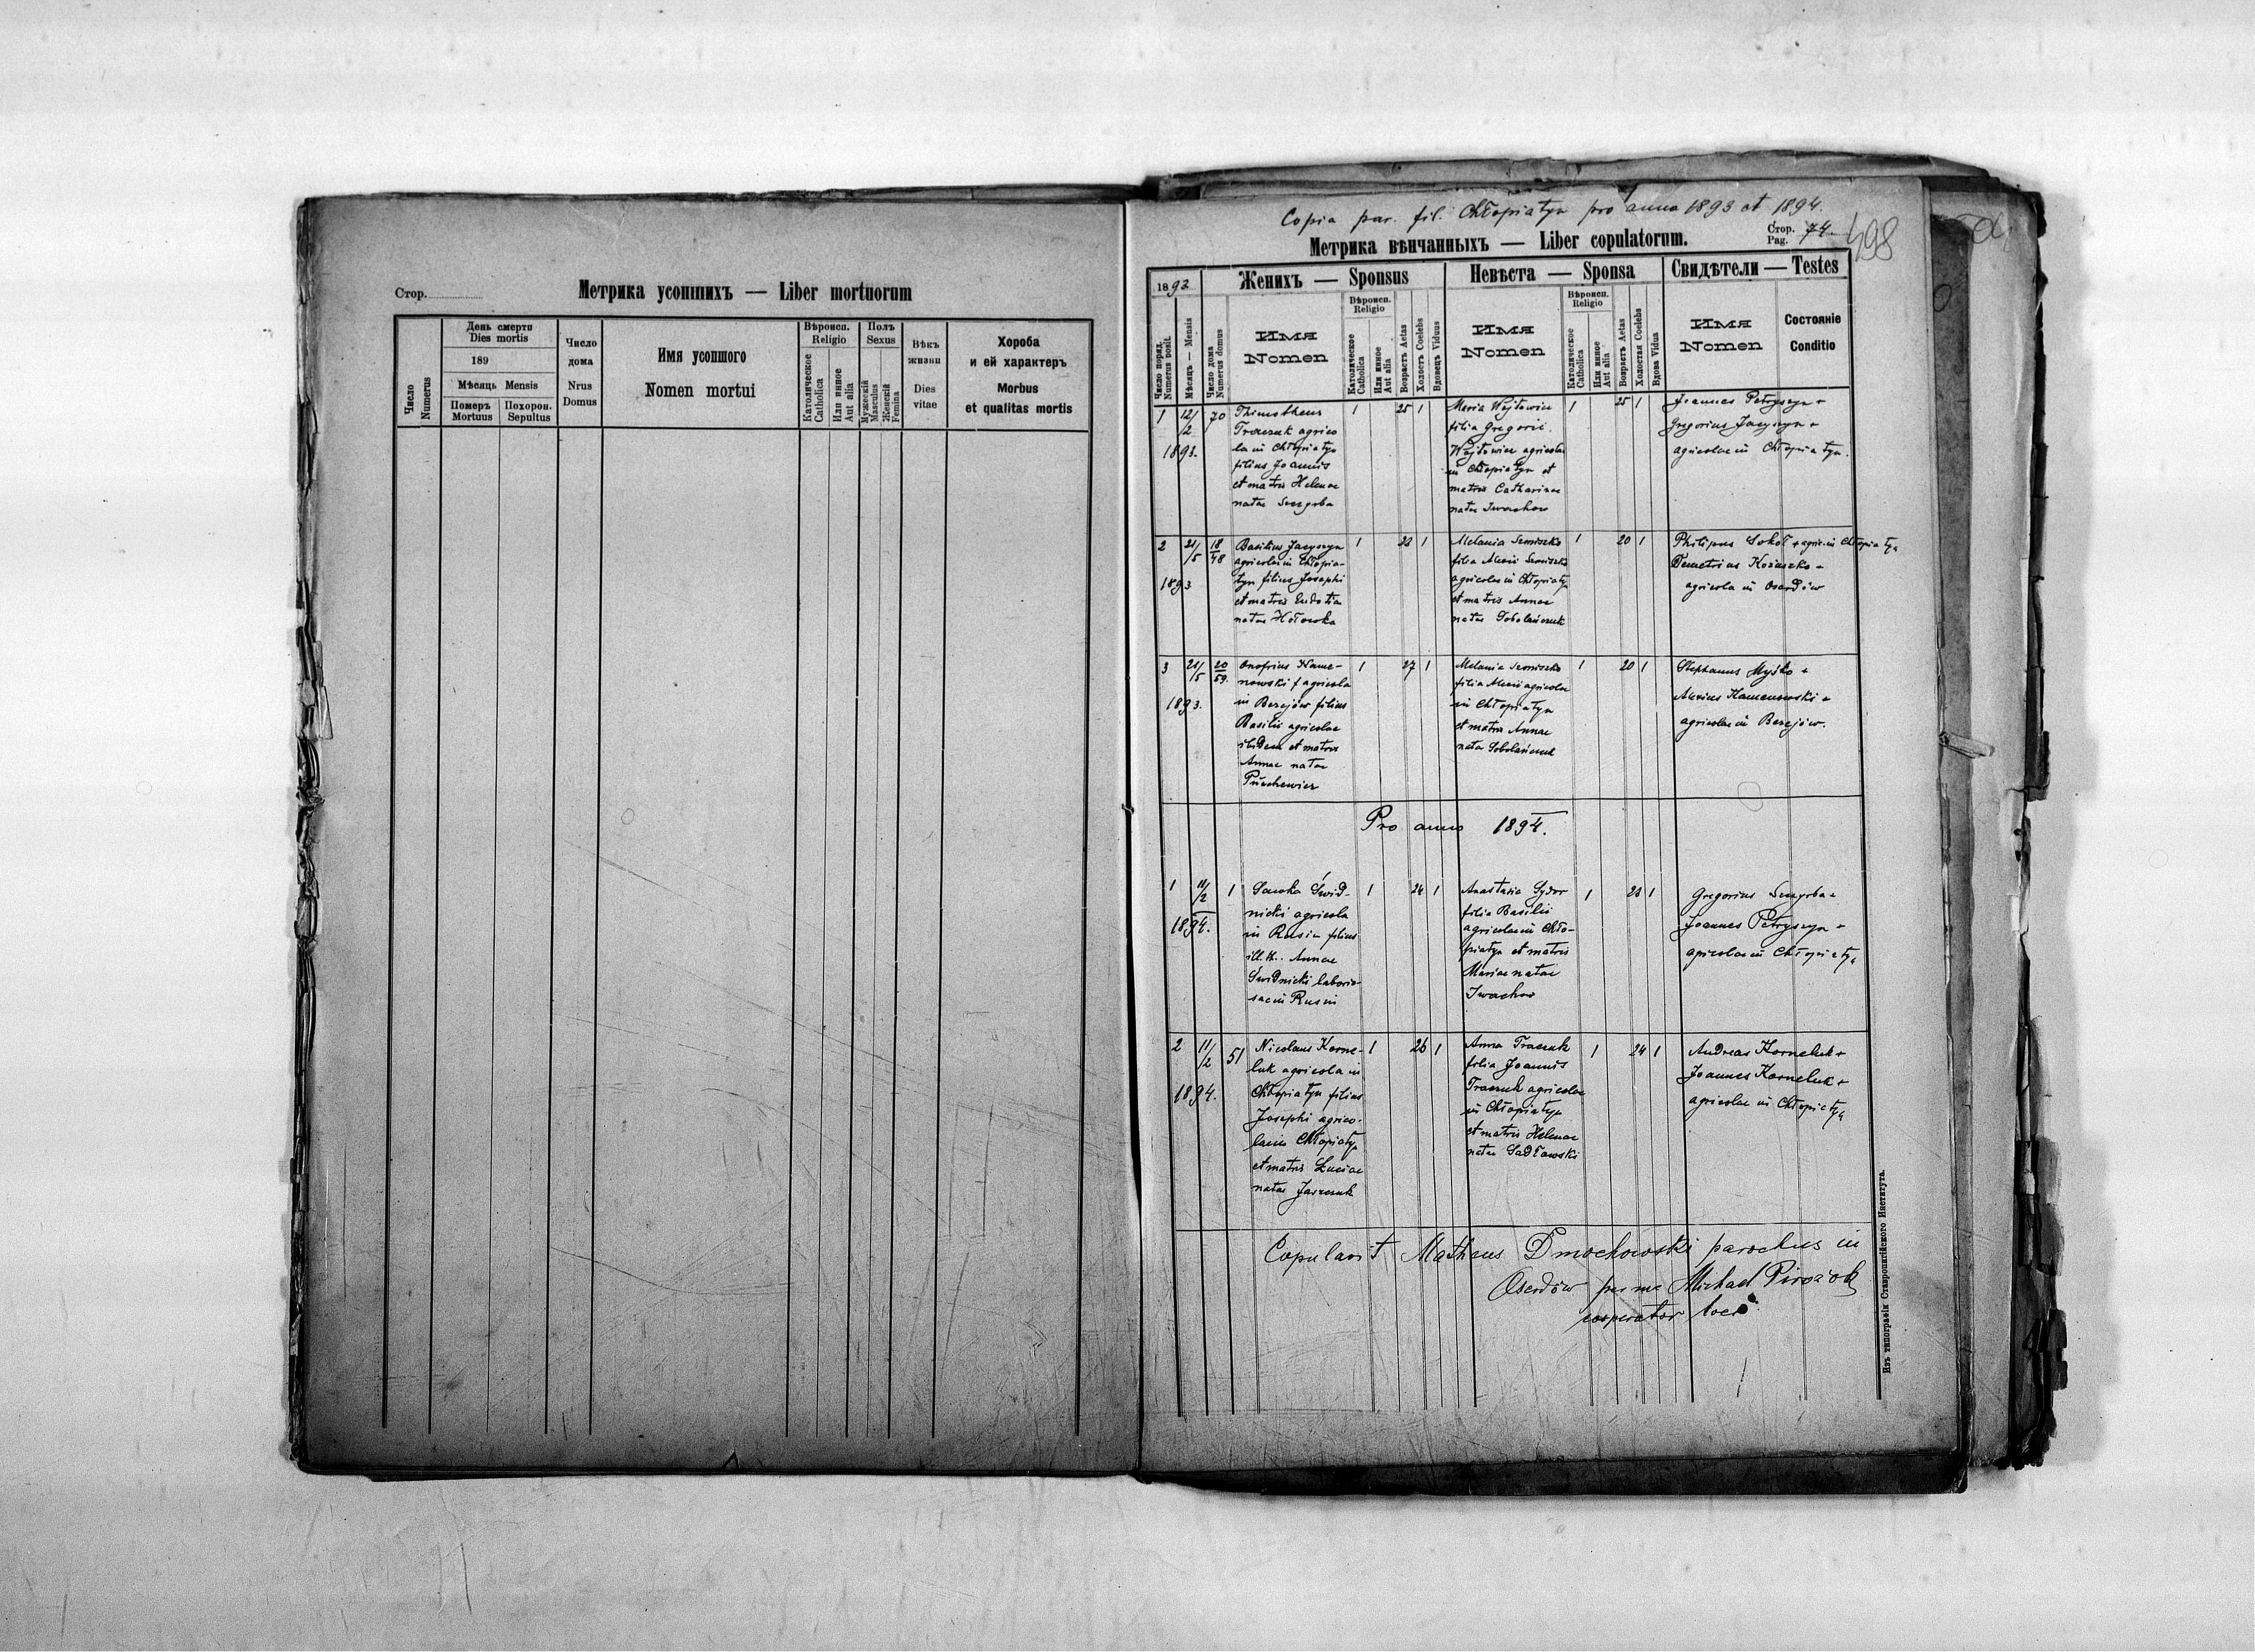 Стор.
Метрика усопшихъ — Liber mortuorum
Число
Numerus
День смерти
Dies mortis
189
Мѣсяць Mensis
Померъ
Mortuus
Похорон.
Sepultus
Число
дома
Nrus
Domus
Имя усопшого
Nomen mortui
Вѣроисп.
Religio
Католическое
Catholica
Или инное
Aut alia
Полъ
Sexus
Мужескій
Masculus
Женскій
Femina
Вѣкъ
жизни
Dies
vitae
Хороба
и ей характеръ
Morbus
et qualitas mortis
Copia par. fil. Chłopiatyn pro anno 1893 et 1894.
Метрика вѣнчанныхъ — Liber copulatorum.
Стор.
Pag. 74.
498
1893
Женихъ — Sponsus
Невѣста — Sponsa
Свидѣтели — Testes
Число поряд.
Numerus posit.
Мѣсяць — Mensis
Число дома
Numerus domus
Имя
Nomen
Вѣроисп.
Religio
Католическое
Catholica
Или инное
Aut alia
Возрастъ Aetas
Холостъ Coelebs
Вдовецъ Viduus
Имя
Nomen
Вѣроисп.
Religio
Католическое
Catholica
Или инное
Aut alia
Возрастъ Aetas
Холостая Coelebs
Вдова Vidua
Имя
Nomen
Состояніе
Conditio
1 12/2 1893. 70
Thimotheus
Traczuk agrico
la in Chłopiatyn
filius Joannis
et matris Helenae
natae Szczyrba
1 25 1
Maria Wojtowicz
filia Gregorii
Wojtowicz agricolae
in Chłopiatyn et
matris Catharinae
natae Iwachow
1 25 1
Joannes Petryszyn +
Gregorius Jacyszyn +
agricolae in Chłopiatyn.
2 21/5 1893 18/48
Basilius Jacyszyn
agricola in Chłopia-
tyn filius Josephi
et matris Eudotia
natae Hołowka
1 23 1
Melania Semiszko
filia Alexii Semiszko
agricolae in Chłopiatyn
et matris Annae
natae Sobolańczuk
1 20 1
Philipus Sokoł + agric. in Chłopiatyn
Demetrius Koziuszko +
agricola in Oserdów
3 21/5 1893. 20/59.
Onofrius Kame-
nowski + agricola
in Berejów filius
Basilii agricolae
ibidem et matris
Annae natae
1 27 1
Melania Semiszko
filia Alexii agricolae
in Chłopiatyn
et matris Annae
nata Sobolańczuk
1 20 1
Stephanus Myśko +
Alexius Kamenowski +
agricolae in Berejów.
Pro anno 1894.
1 11/2 1894. 1
Swid-
nicki agricola
in Rusin filius
illt. Annae
Swidnicki laborio-
sae in Rusin
1 24 1
Anastasia Sydor
filia Basilii
agricolae in Chło-
piatyn et matris
Mariae natae
Iwachow
1 23 1
Gregorius Szczyrba +
Joannes Petryszyn +
agricolae in Chłopiatyn
2 11/2 1894. 51
Nicolaus Korne-
luk agricola in
Chłopiatyn filius
Josephi agrico-
lae in Chłopiatyn
et matris Luciae
natae Jaszczuk
1 26 1
Anna Traczuk
filia Joannis
Traczuk agricolae
in Chłopiatyn
et matris Helenae
natae Sadłowski
1 24 1
Andreas Korneluk +
Joannes Korneluk +
agricolae in Chłopiatyn
Copulavit Matheus Dmochowski parochus in
Oserdów per me Michael Pirożok
cooperator loci
Изъ типографіи Ставропигійского Института.